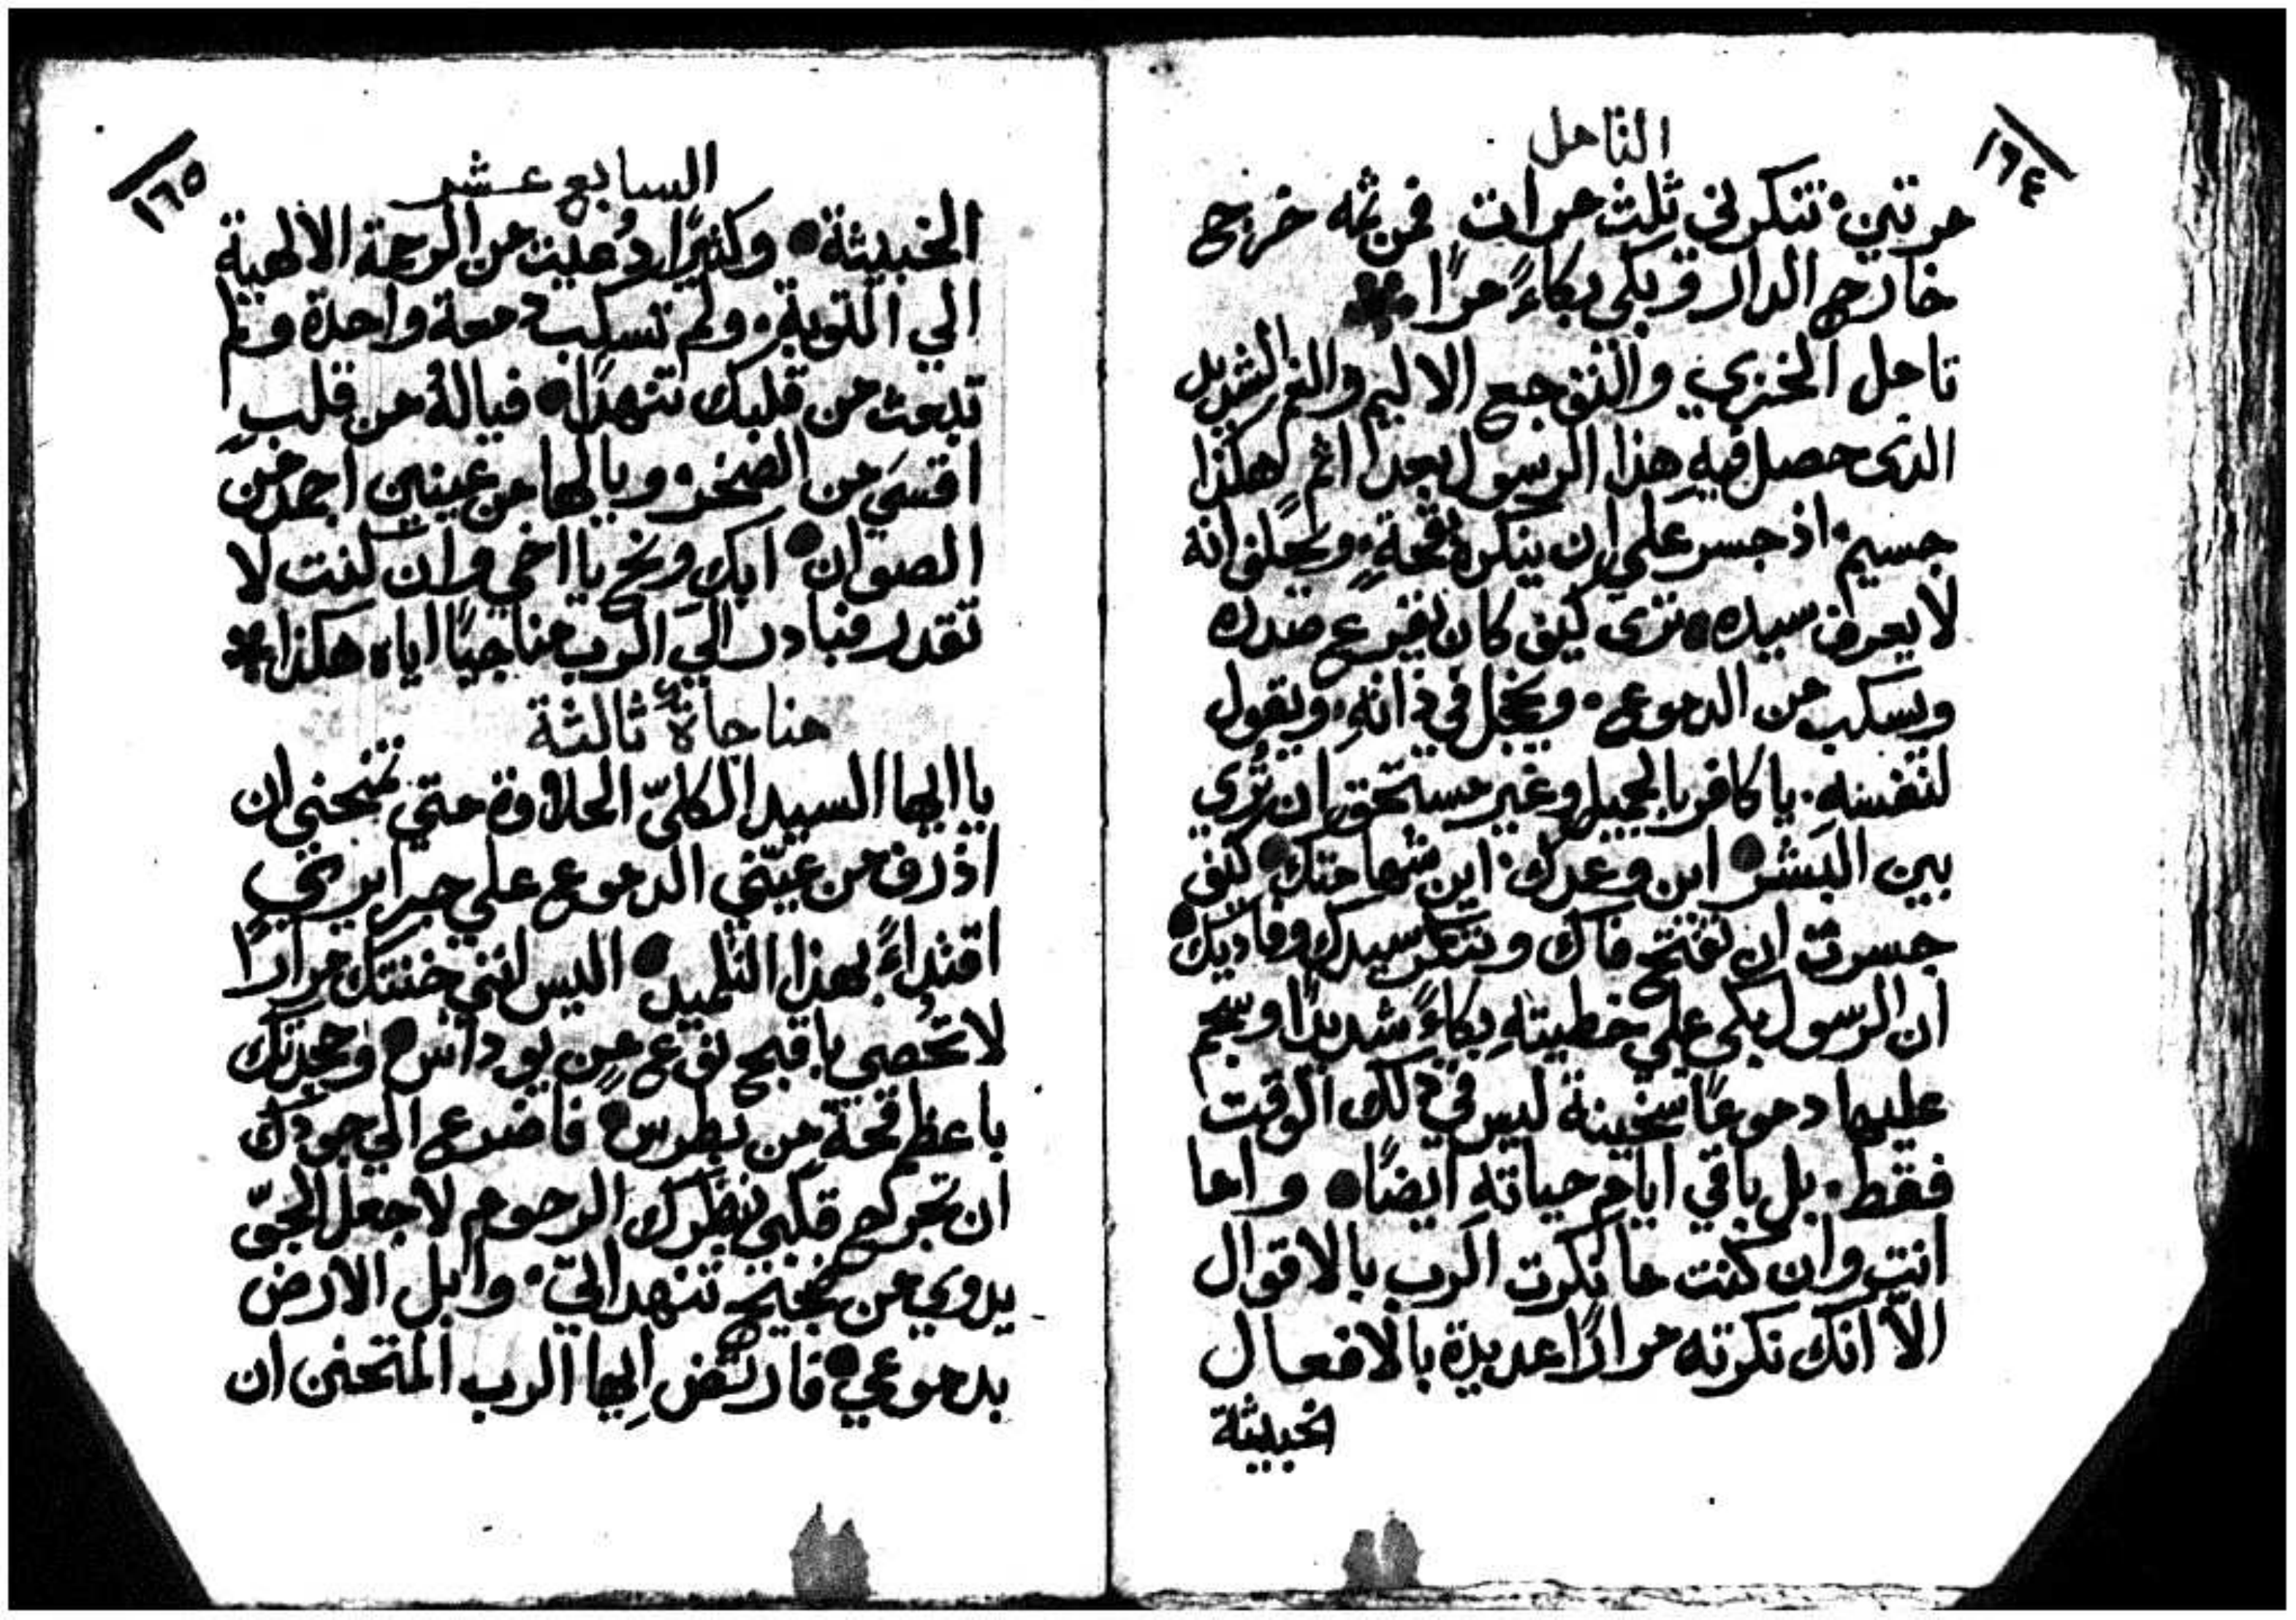 ١٦٤
التامل
مرتين. تنكرني ثلث مرات فمن ثمه خرج
خارج الدار وبكى بكاءً مرًا
تامل الخزي والتوجع الاليم والغم الشديد
الذى حصل فيه هذا الرسول بعد اثم هكذا
جسيم. اذ جسر على ان ينكره بقحةٍ. ويحلف انه
لا يعرف سيده ترى كيف كان يقرع صدره
ويسكب من الدموع. ويخجل في ذاتهِ. ويقول
لنفسهِ. يا كافر بالجميل وغير مستحق ان تُرى
بين البشر اين وعدك. اين شهامتك كيف
جسرت ان تفتح فاك وتنكر سيدك وفاديك
ان الرسول بكى على خطيتهِ بكاءً شديدًا وسجم
عليها دموعًا سخينة ليس في ذلك الوقت
فقط. بل باقي ايام حياته ايضًا واما
انت وان كنت ما نكرت الرب بالاقوال
الّا انك نكرته مرارًا عديدة بالافعال
الخبيثة
١٦٥
السابع عشر
الخبيثة وكثيرًا دُعيت من الرحمة الالهية
الي التوبة. ولم تسكب دمعة واحدة ولم
تبعث من قلبك تنهدًا فيالهُ من قلبٍ
اقسَى من الصخر. ويالها من عينين اجمد من
الصوان ابك ونح يا اخي وان كنت لا
تقدر فبادر الى الرب مناجيًا اياه هكذا
مناجاة ثالثة
يا ايها السيد الكليّ الحلاوة متي تمنحني ان
اذرف من عينّي الدموع علي جرايري
اقتداءً بهذا التلميد اليس انني خنتك مرارًا
لا تُحصي باقبح نوعٍ من يوداس وجحدتك
باعظم قحةٍ من بطرس فاضرع الي جودك
ان تجرح قلبي بنظرك الرحوم لاجعل الجوّ
يدوي من نحيح تنهداتي. وابل الارض
بدموعي فارتضِ ايها الرب المتحنن ان